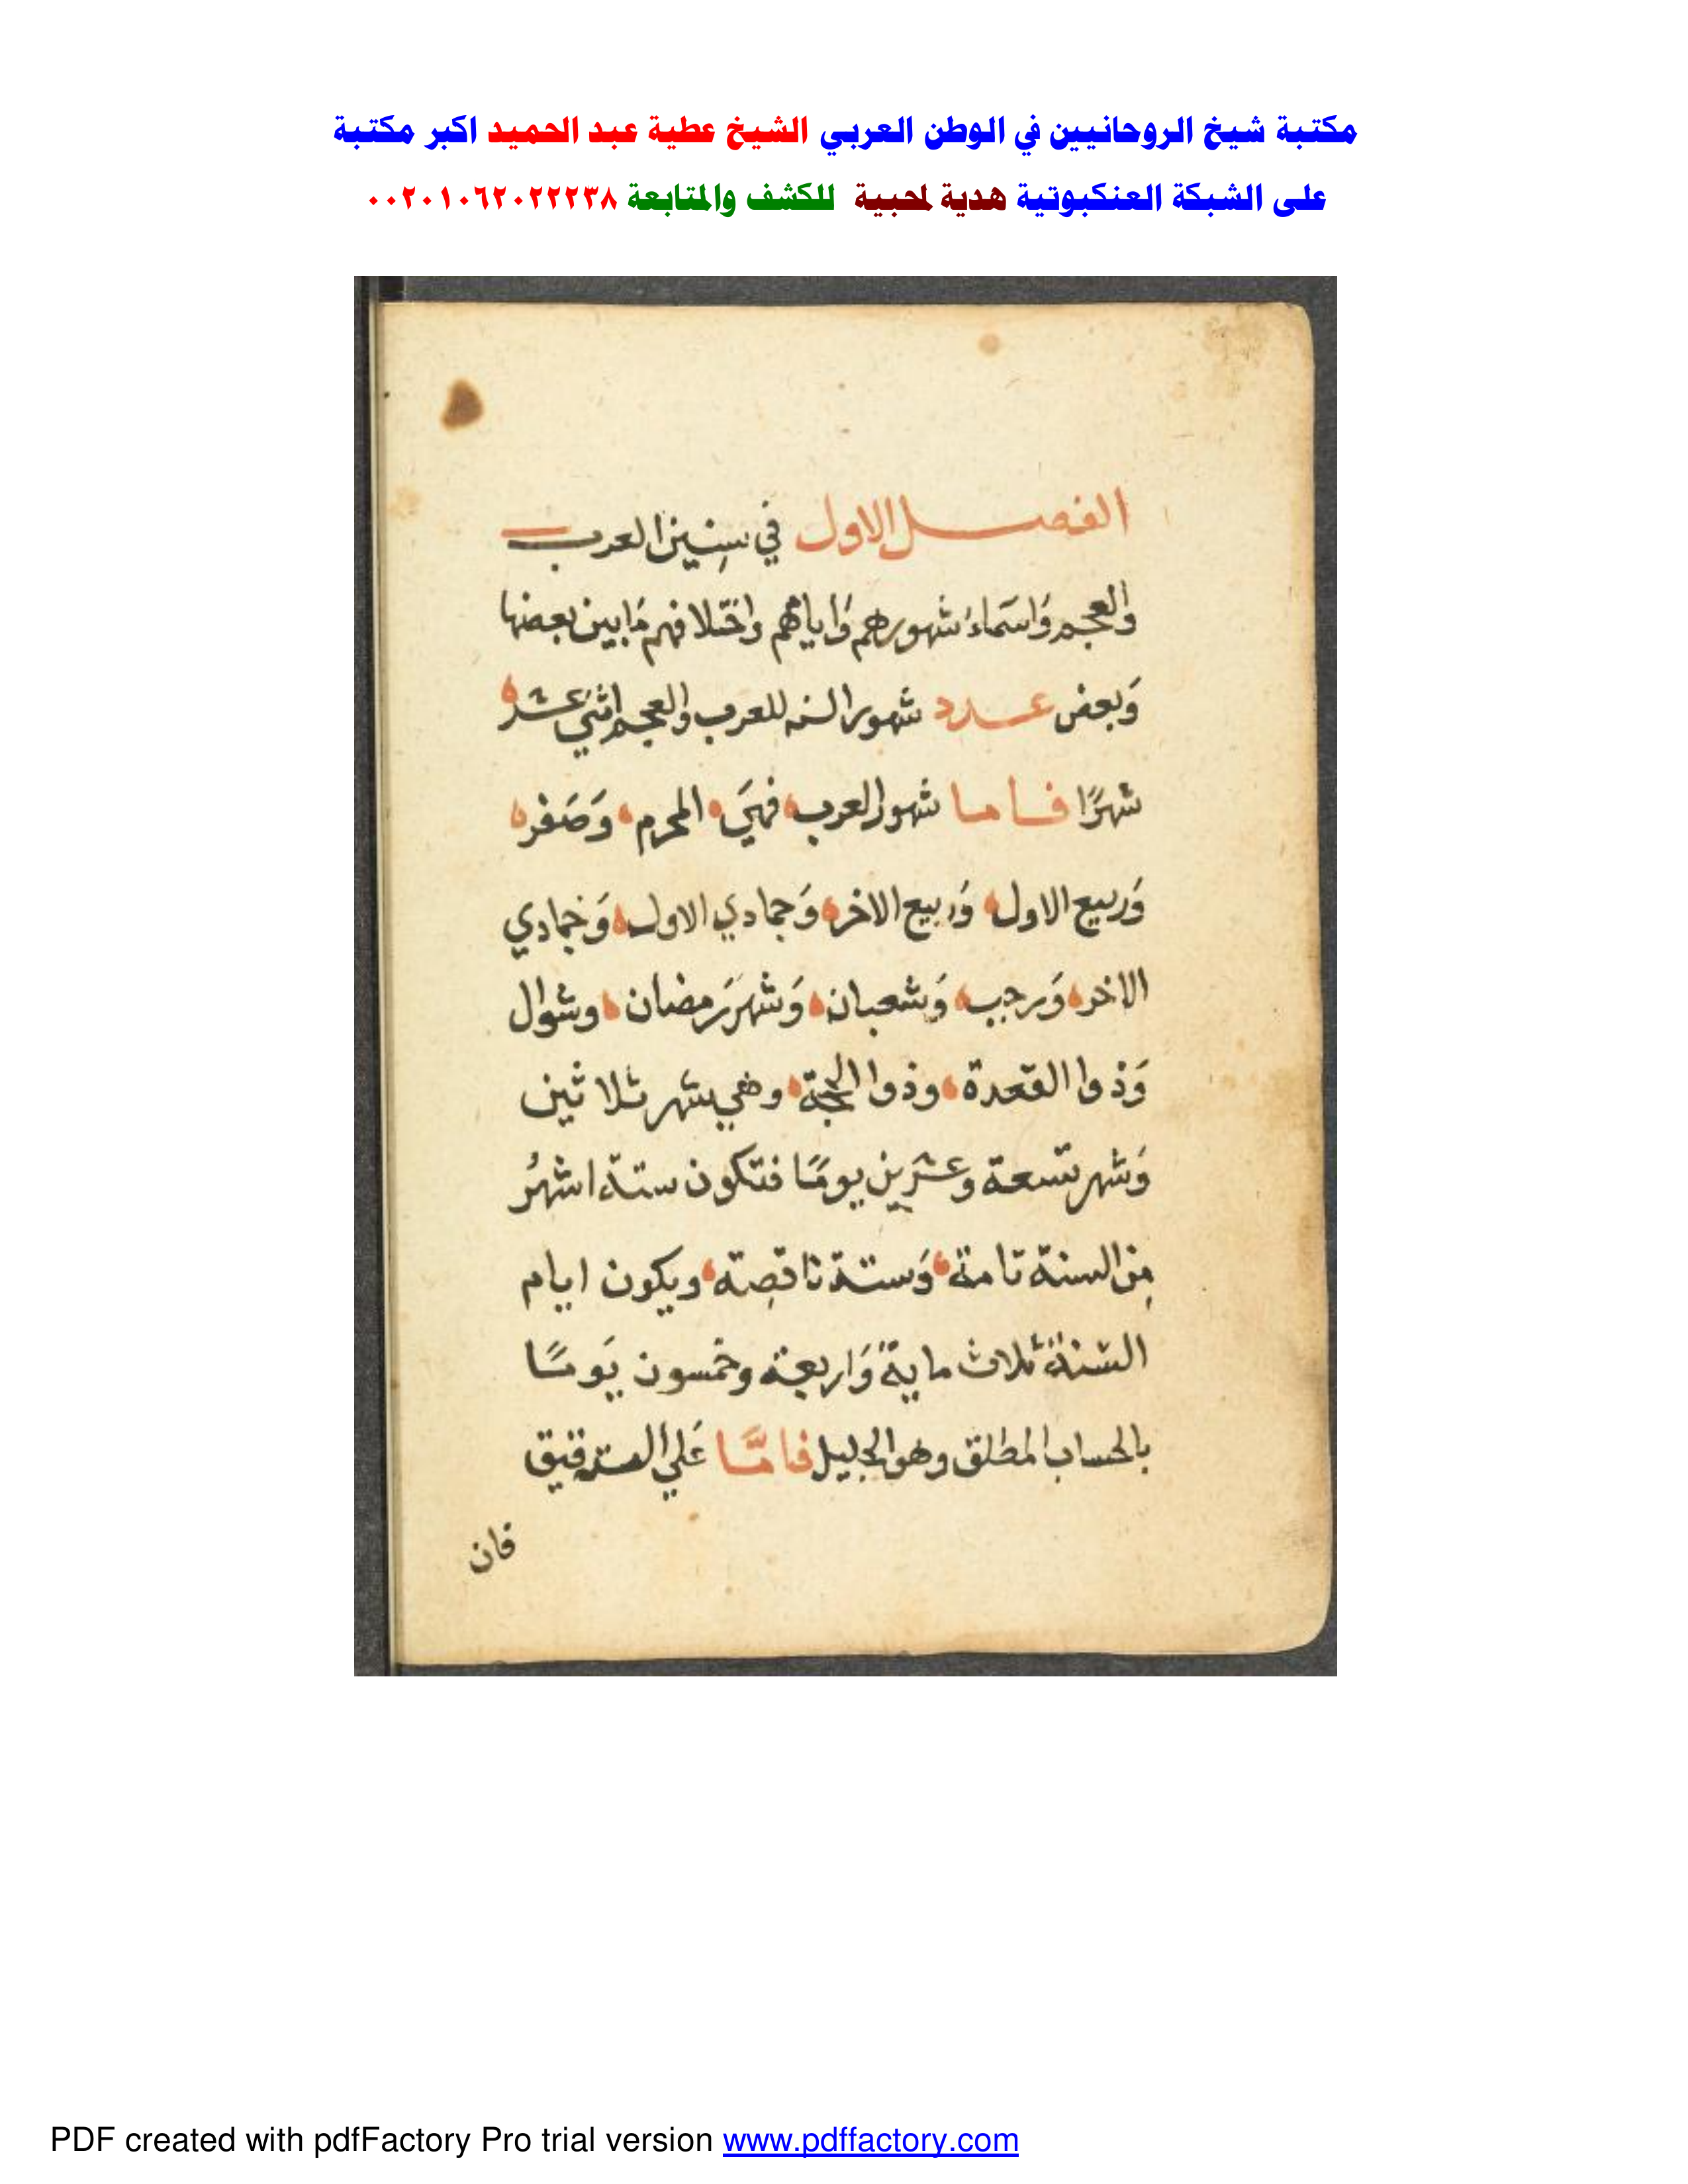 مكتبة شيخ الروحانيين في الوطن العربي الشيخ عطية عبد الحميد اكبر مكتبة
على الشبكة العنكبوتية هدية لمحبية للكشف والمتابعة ٠٠٢٠١٠٦٢٠٢٢٢٣٨
الفصل الاول في سِنِين العرب
والعجم وَاسمَاء شهورهم وَاياهم واختلافهم مَا بين بعضها
وَبعض عدد شهور السنه للعرب والعجم اثني عشر
شهرًا فاما شهور العرب فهيَ المحرم وَصَفر
وَربيع الاول وَربيع الاخر وَجمادي الاول وَجمادي
الاخر وَرجب وَشعبان وَشهرَ رَمضان وشوال
وَذوا القعدة وذوا الحجة وهي شهر ثلاثين
وَشهر تسعة وعشرِين يومًا فتكون ستة اشهُر
مِن السنة تامة وَستة ناقصِة ويكون ايام
السنة ثلاث ماية وَاربعة وخمسون يَومًا
بالحساب المطلق وهو الجليل فامَّا عَلي التدقيق
فان
PDF created with pdfFactory Pro trial version www.pdffactory.com